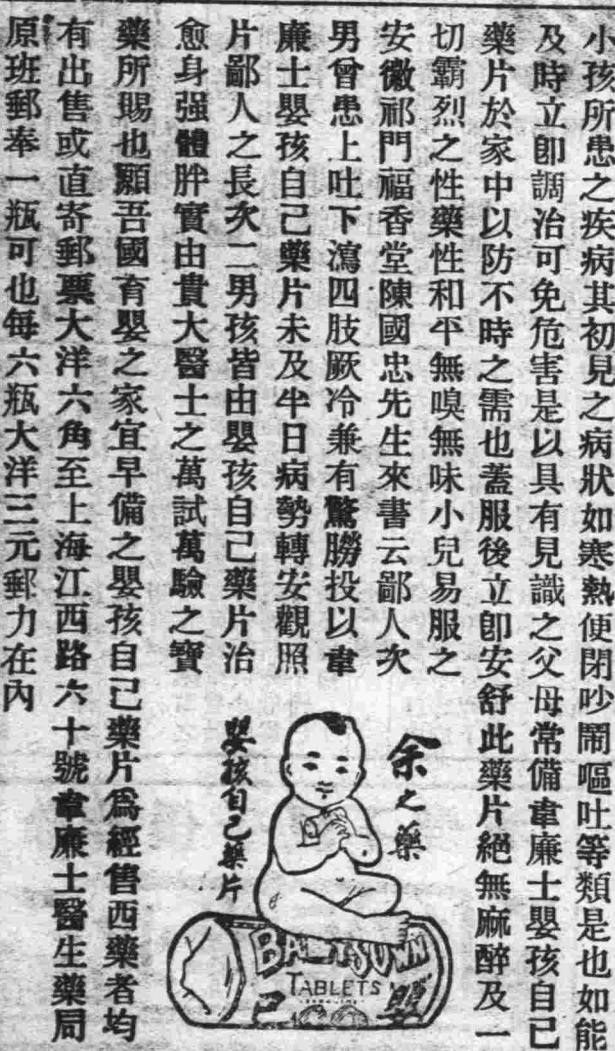 小孩所患之疾病其初見之病狀如寒熱便閉吵鬧嘔吐等類是也如能
及時立卽調治可免危害是以具有見識之父母常備韋廉士嬰孩自己
藥片於家中以防不時之需也蓋服後立卽安舒此藥片絕無麻醉及一
切霸烈之性藥性和平無嗅無味小兒易服之
安徽祁門福香堂陳國忠先生來書云鄙人次
男曾患上吐下瀉四肢厥冷兼有驚勝投以韋
廉士嬰孩自己藥片未及半日病勢轉安觀照
片鄙人之長次二男孩皆由嬰孩自己藥片治
愈身强體胖實由貴大醫士之萬試萬驗之寶
藥所賜也願吾國育嬰之家宜早備之嬰孩自己藥片爲經售西藥者均
有出售或直寄郵票大洋六角至上海江西路六十號韋廉士醫生藥局
原班郵奉一瓶可也每六瓶大洋三元郵力在內
余之藥
嬰孩自己藥片
TABLETS
嬰
己